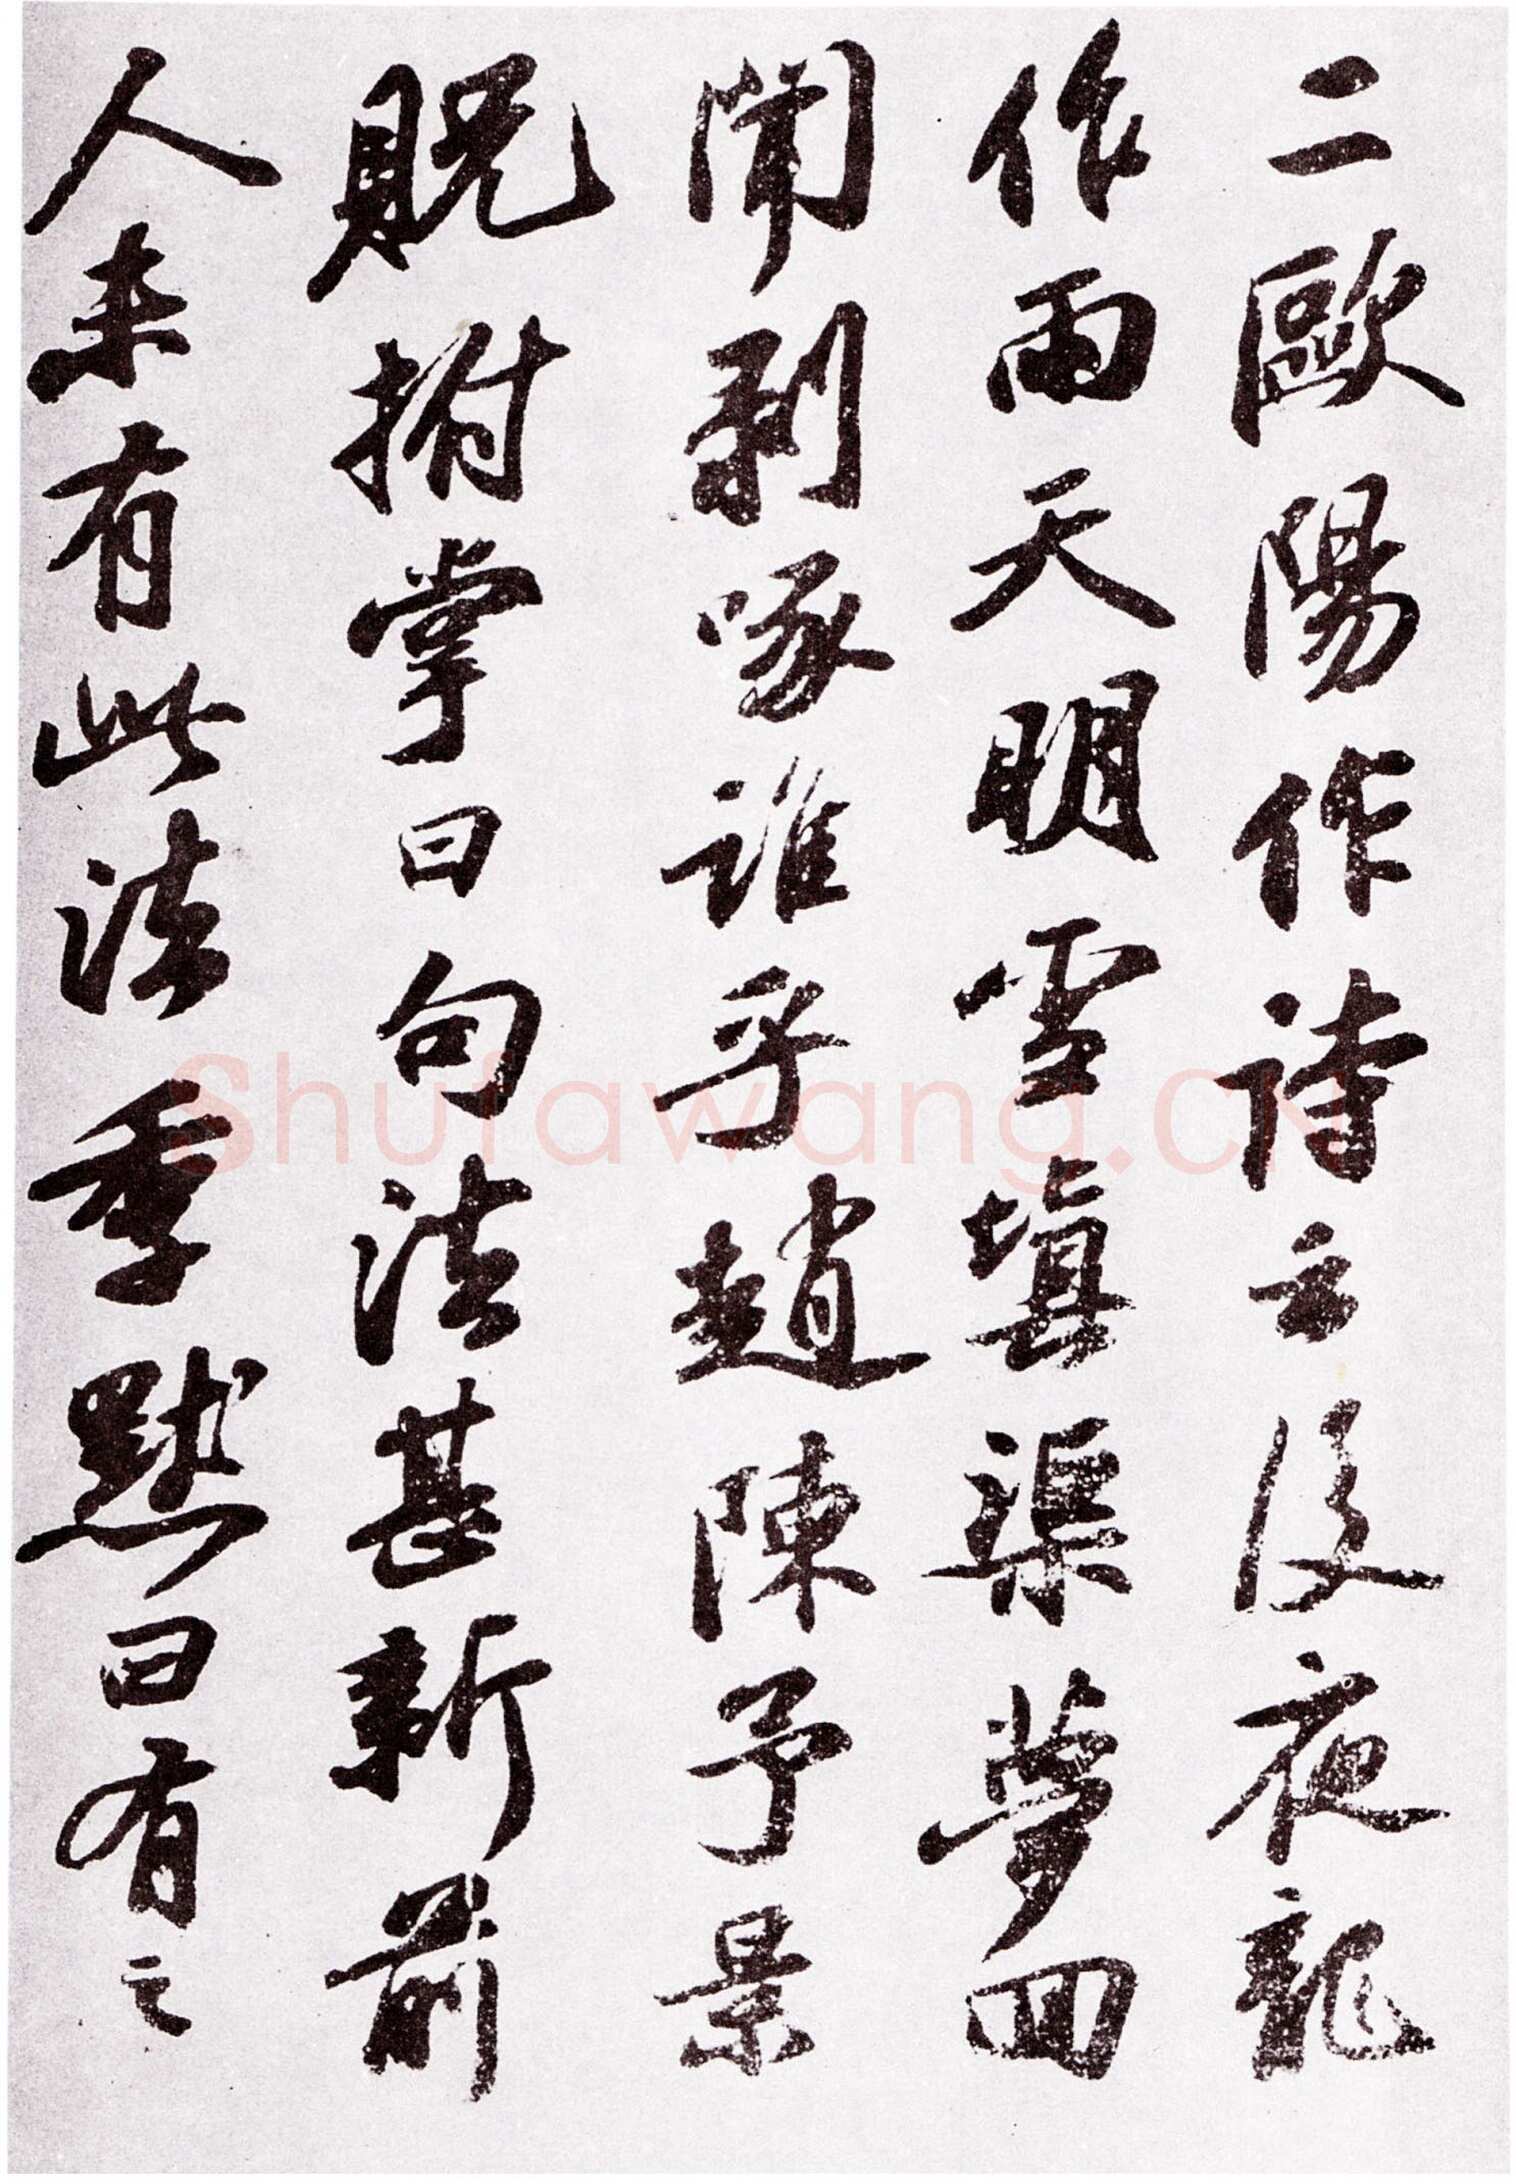 二歐陽作詩云後夜龍
作雨天明雪填渠夢回
聞剥啄誰乎趙陳予景
貺拊掌曰句法甚新前
人未有此法季默曰有之
shufawang.cn